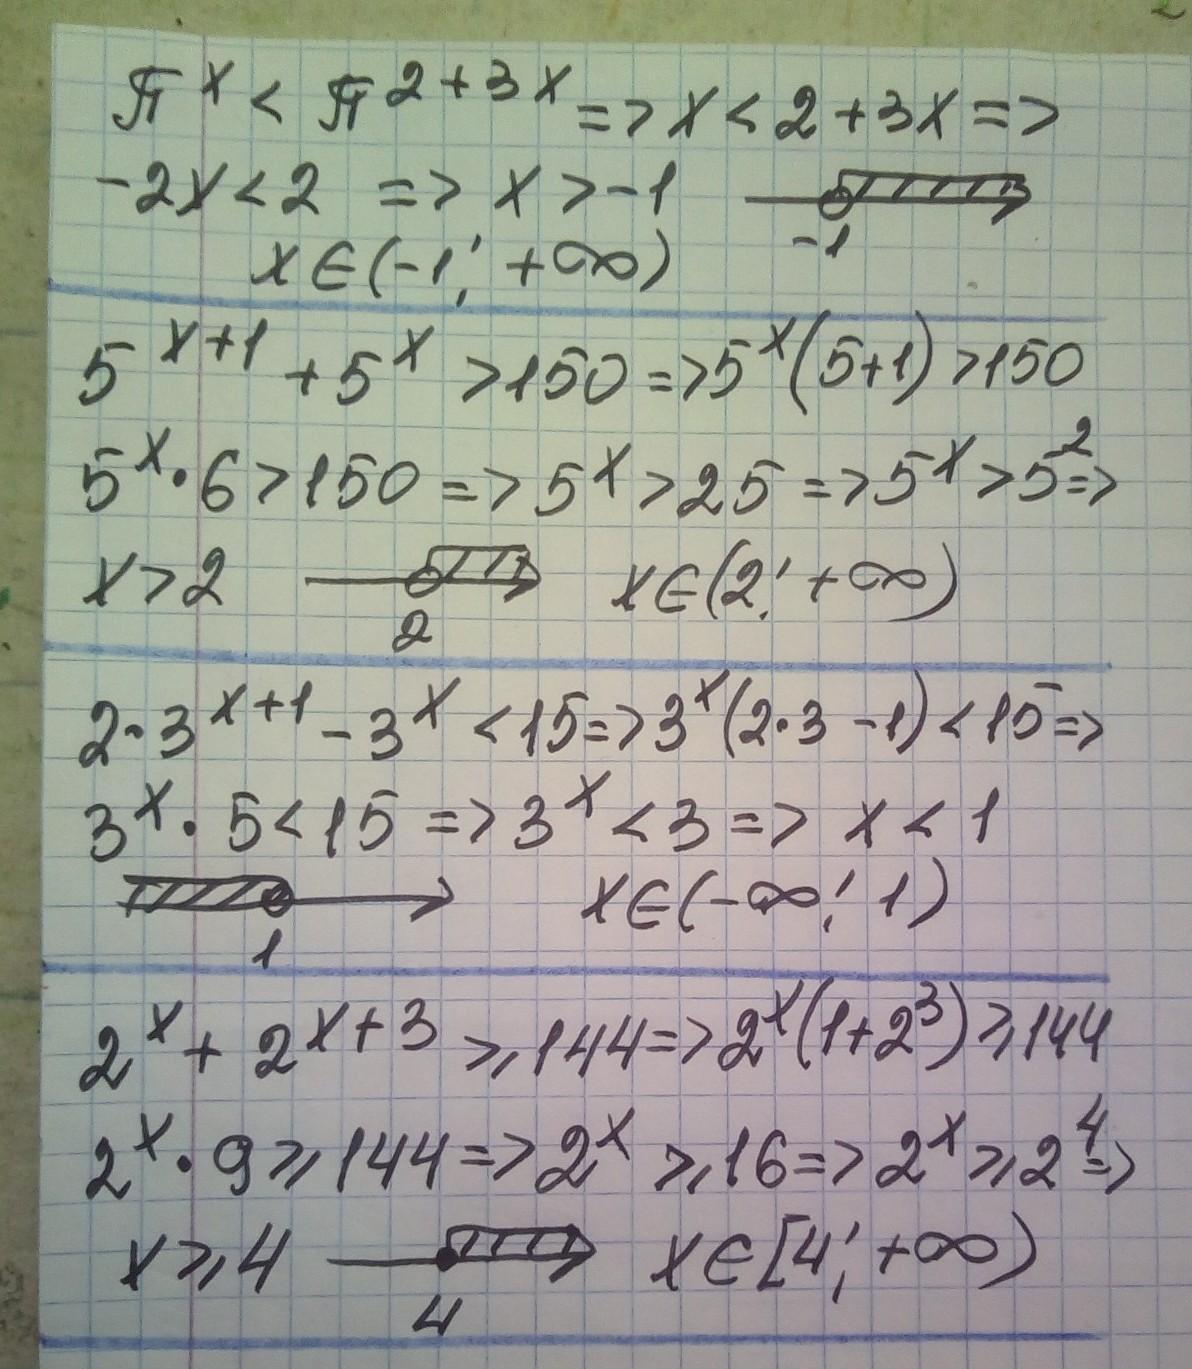 π^x < π^(2+3x) => x < 2+3x =>
-2x < 2 => x > -1 -1
x∈(-1; +∞)
5^(x+1) + 5^x > 150 => 5^x(5+1) > 150
5^x · 6 > 150 => 5^x > 25 => 5^x > 5^2 =>
x > 2 2 x∈(2; +∞)
2·3^(x+1) - 3^x < 15 => 3^x(2·3 - 1) < 15 =>
3^x · 5 < 15 => 3^x < 3 => x < 1
1 x∈(-∞; 1)
2^x + 2^(x+3) ⩾ 144 => 2^x(1+2^3) ⩾ 144
2^x · 9 ⩾ 144 => 2^x ⩾ 16 => 2^x ⩾ 2^4 =>
x ⩾ 4 4 x∈[4; +∞)